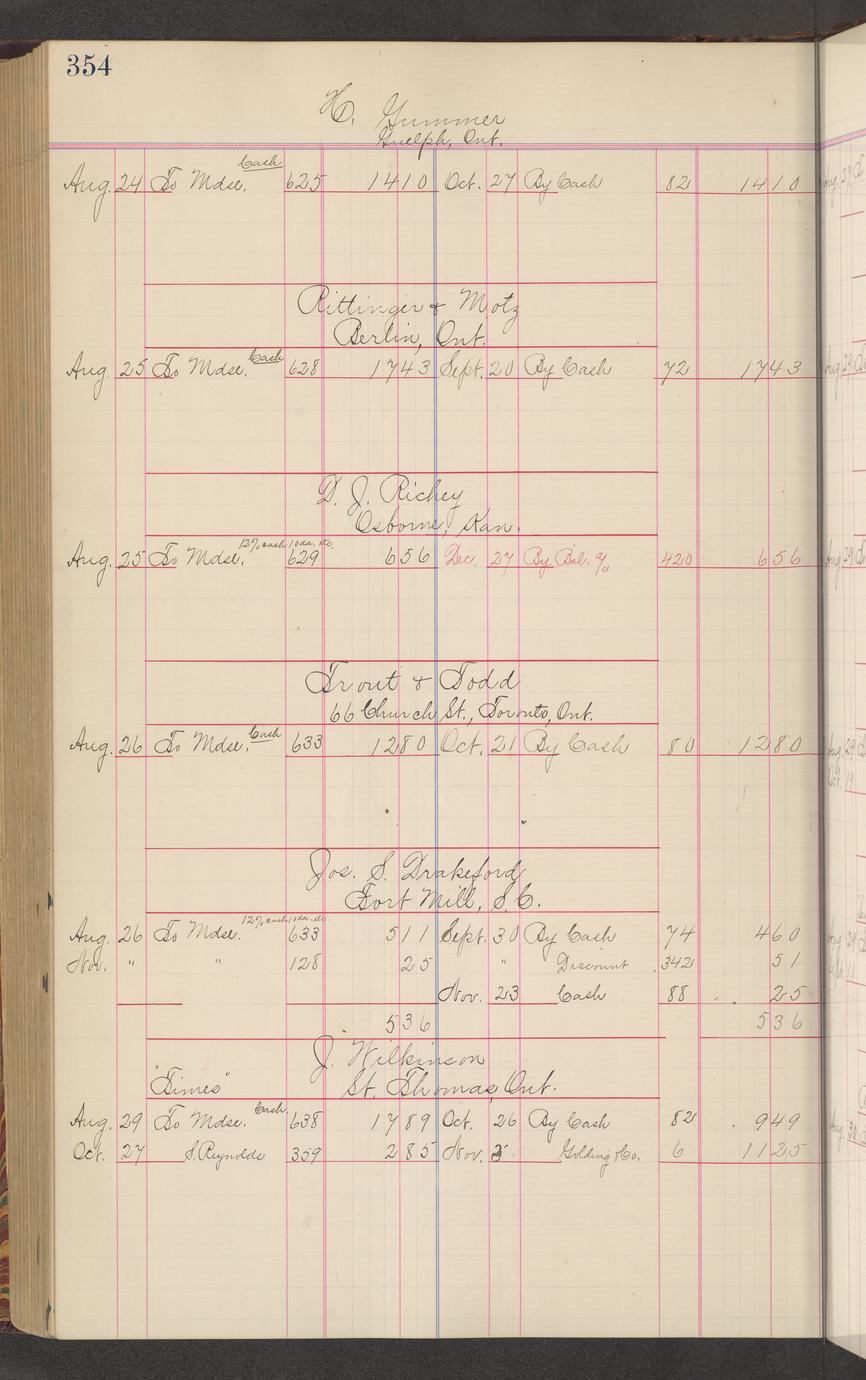 354
H. Gummer
Guelph, Ont.
Cash
Aug. 24 To Mdse. 625 1410 Oct. 27 By Cash 82 1410
Rittinger & Motz
Berlin, Ont.
Aug. 25 To Mdse. Cash 628 1743 Sept. 20 By Cash 72 1743
D. J. Richey
Osborne, Kan.
12% cash 10 da. etc.
Aug. 25 To Mdse. 629 656 Dec. 27 By Bal. % 420 656
Trout & Todd
66 Church St., Toronto, Ont.
Aug. 26 To Mdse. Cash 633 1280 Oct. 21 By Cash 80 1280
Jos. S. Drakeford
Fort Mill, S.C.
12% cash 10 da. etc.
Aug. 26 To Mdse. 633 511 Sept. 30 By Cash 74 460
Nov. " " 128 25 " Discount 342 51
Nov. 23 Cash 88 25
536 536
J. Wilkinson
"Times" St. Thomas, Ont.
Aug. 29 To Mdse. Cash. 638 1789 Oct. 26 By Cash 82 949
Oct. 27 S. Reynolds 359 285 Nov. 5 Golding & Co. 6 1125